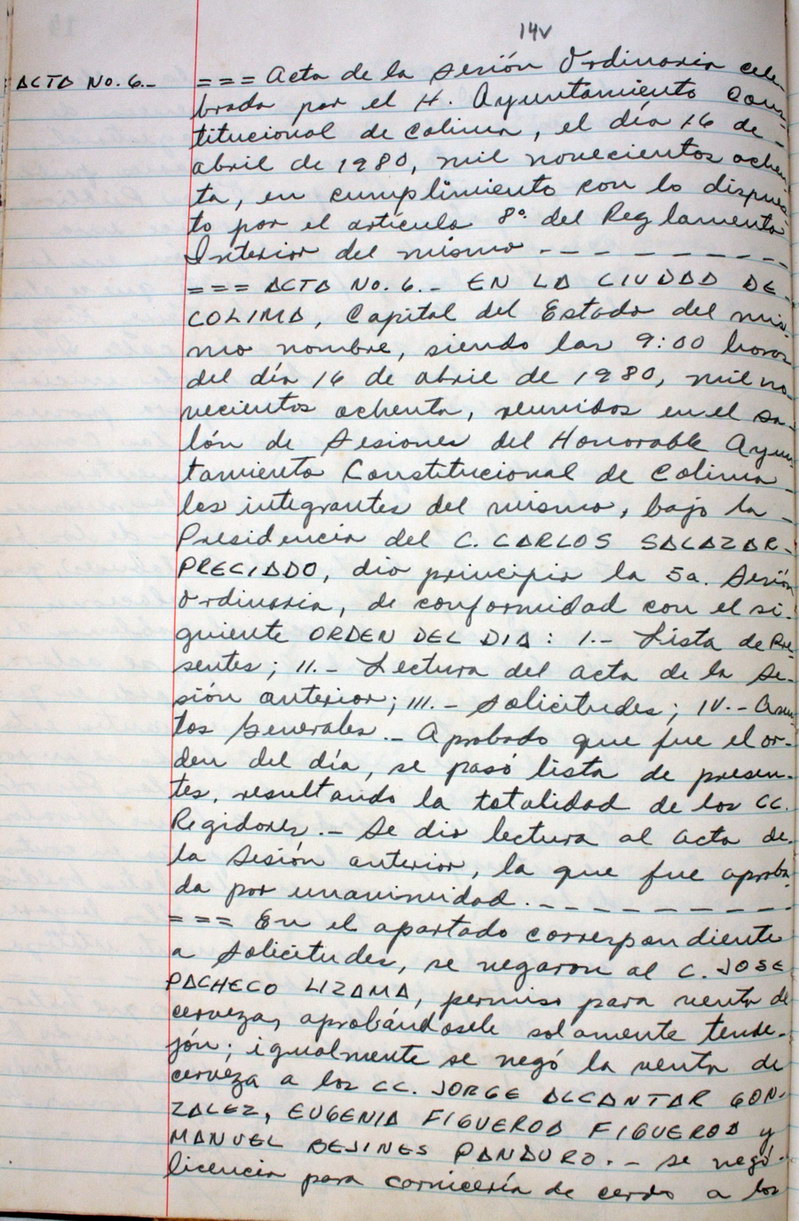 14v
ACTA No. 6.- === Acta de la Sesión Ordinaria cele
brada por el H. Ayuntamiento Cons-
titucional de Colima, el día 16 de -
abril de 1980, mil novecientos ochen
ta, en cumplimiento con lo dispues
to por el artículo 8o. del Reglamento
Interior del mismo - - - - - - - - -
=== ACTA No. 6.- EN LA CIUDAD DE
COLIMA, Capital del Estado del mis-
mo nombre, siendo las 9:00 horas
del día 16 de abril de 1980, mil no
vecientos ochenta, reunidos en el sa-
lón de Sesiones del Honorable Ayun-
tamiento Constitucional de Colima
los integrantes del mismo, bajo la -
Presidencia del C. CARLOS SALAZAR-
PRECIADO, dio principio la 5a. Sesión
Ordinaria, de conformidad con el si-
guiente ORDEN DEL DIA: I.- Lista de Pre
sentes; II.- Lectura del acta de la Se-
sión anterior; III.- Solicitudes; IV.- Asun
tos Generales.- Aprobado que fue el or-
den del día, se pasó lista de presen-
tes, resultando la totalidad de los CC.
Regidores.- Se dio lectura al acta de
la Sesión anterior, la que fue aproba-
da por unanimidad.- - - - - - - - -
=== En el apartado correspondiente
a Solicitudes, se negaron al C. JOSE
PACHECO LIZAMA, permiso para venta de
cerveza, aprobándosele solamente tende-
jón; igualmente se negó la venta de
cerveza a los CC. JORGE ALCANTAR GON-
ZALEZ, EUGENIA FIGUEROA FIGUEROA y
MANUEL BEJINES PANDURO.- Se negó-
licencia para carnicería de cerdo a los